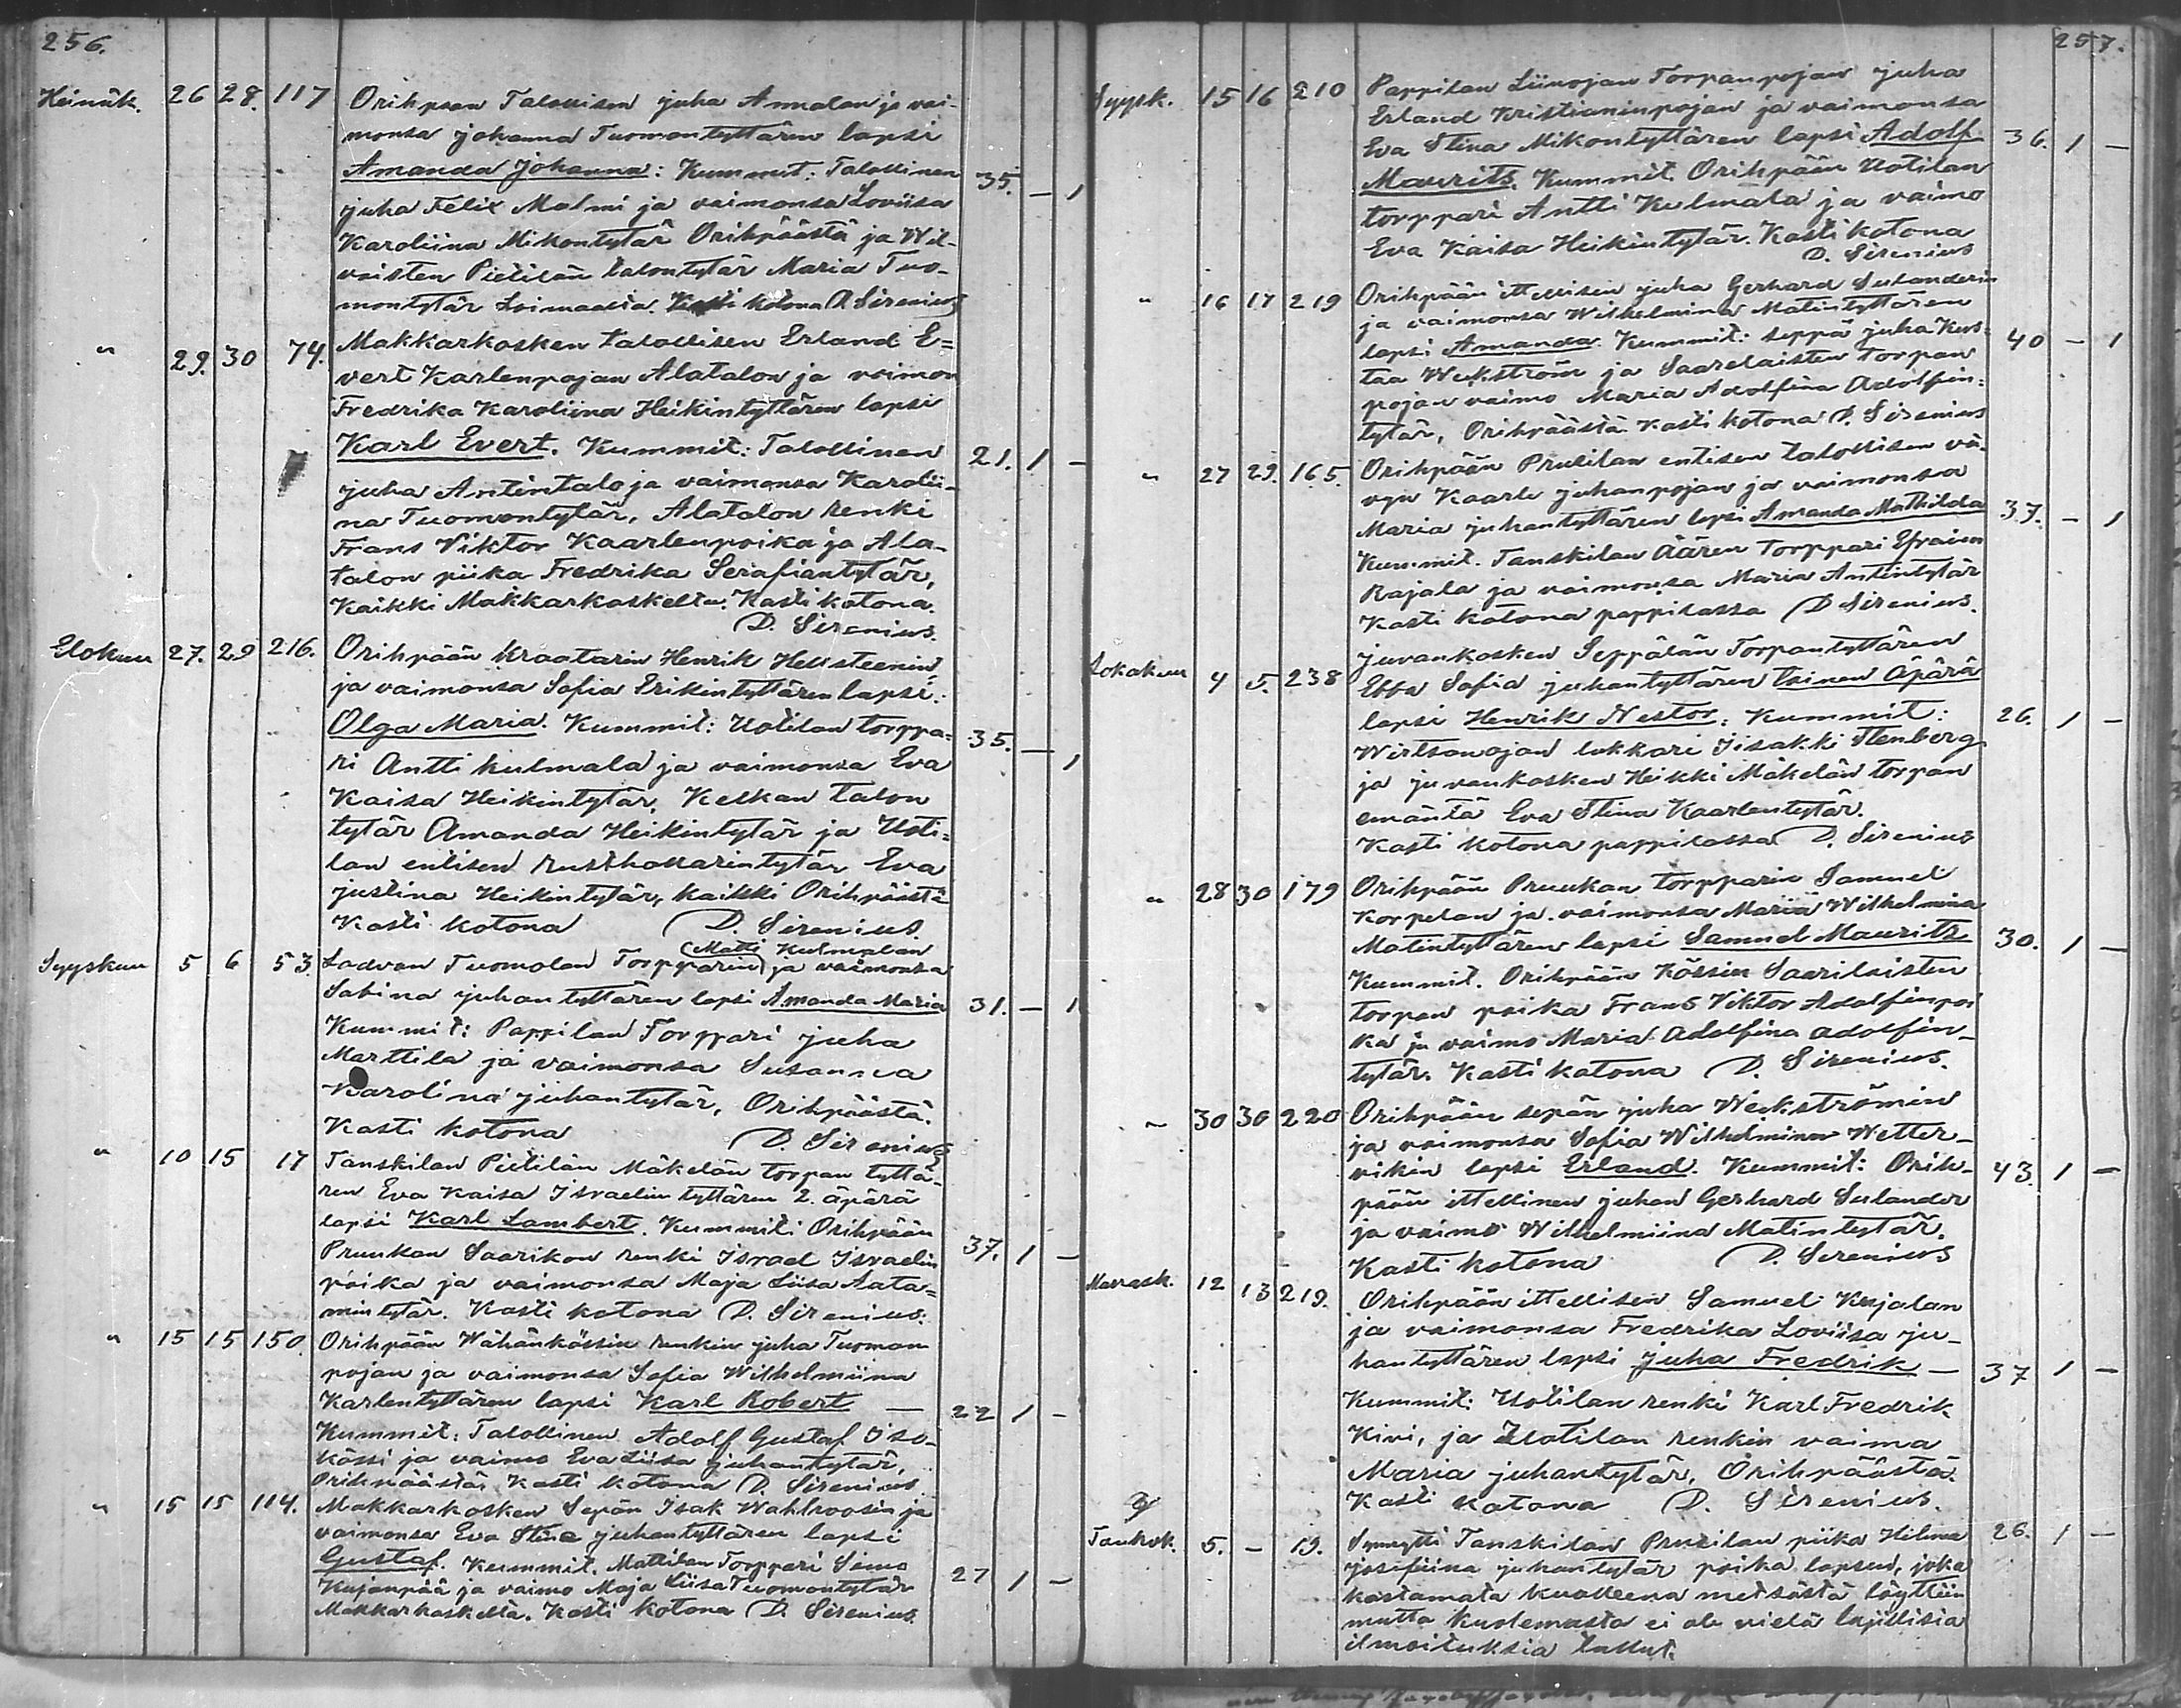 256.
Heinäk. 26 28. 117 Orihpään Talollisen Juha Annalan ja vai-
monsa Johanna Tuomontyttären lapsi
Amanda Johanna: Kummit: Talollinen 35. — 1
Juha Felix Malmi ja vaimonsa Loviisa
Karoliina Mikontytär Orihpäästä ja Wil-
vaisten Pietilän talontytär Maria Tuo-
montytär Loimaalta. Kasti kotona D. Sirenius
" 29. 30 74. Makkarkosken talollisen Erland E=
vert Karlenpojan Alatalon ja vaimon
Fredrika Karoliina Heikintyttären lapsi
Karl Evert. Kummit: Talollinen 21. 1 —
Juha Antintalo ja vaimonsa Karolii-
na Tuomontytär, Alatalon renki
Frans Viktor Kaarlenpoika ja Ala-
talon piika Fredrika Serafiantytär,
Kaikki Makkarkoskelta. Kasti kotona.
D. Sirenius.
Elokuu 27. 29 216. Orihpään Kraatarin Henrik Hellsteenin
ja vaimonsa Sofia Erikintyttären lapsi:
Olga Maria. Kummit: Uotilan torppa= 35. — 1
ri Antti Kulmala ja vaimonsa Eva
Kaisa Heikintytär, Kelkan talon
tytär Amanda Heikintytär ja Uoti=
lan entisen rusthollarintytär Eva
Justina Heikintytär, kaikki Orihpäästä
Kasti kotona D. Sirenius.
Syyskuu 5 6 53. Ladvan Tuomolan Torpparin (Matti Kulmalan) ja vaimonsa
Sabina Juhantyttären lapsi Amanda Maria 31. — 1
Kummit: Pappilan Torppari Juha
Marttila ja vaimonsa Susanna
Karolina Juhantytär, Orihpäästä.
Kasti kotona D. Sirenius
" 10 15 17 Tanskilan Pietilän Mäkelän torpan tyttä-
ren Eva Kaisa Israelin tyttären 2. äpärä
lapsi Karl Lambert. Kummit: Orihpään
Pruukan Saarikon renki Israel Israelin 37. 1 —
poika ja vaimonsa Maja Liisa Aata=
mintytär. Kasti kotona D. Sirenius.
" 15 15 150. Orihpään Wähänkössin renkin Juha Tuoman
pojan ja vaimonsa Sofia Wilhelmiina
Karlentyttären lapsi Karl Robert — 22 1 —
Kummit: Talollinen Adolf Gustaf Iso-
kössi ja vaimo Eva Liisa Juhantytär,
Orihpäästä. Kasti kotona D. Sirenius.
" 15 15 114. Makkarkosken Sepän Isak Wahlroosin ja
vaimonsa Eva Stina Juhantyttären lapsi
Gustaf. Kummit. Mattilan Torppari Simo 27 1 —
Kujanpää ja vaimo Maja Liisa Tuomontytär
Makkarkoskelta. Kasti kotona D. Sirenius.
257.
Syysk. 15 16 210 Pappilan Liinojan Torpanpojan Juha
Erland Kristianinpojan ja vaimonsa
Eva Stina Mikontyttären lapsi Adolf 36. 1 —
Maurits. Kummit. Orihpään Uotilan
torppari Antti Kulmala ja vaimo
Eva Kaisa Heikintytär. Kasti kotona
D. Sirenius
" 16 17 219 Orihpään ittellisen Juha Gerhard Sulanderin
ja vaimonsa Wilhelmina Matintyttären
lapsi Amanda. Kummit: seppä Juha Kus= 40 — 1
taa Weckström ja Saarelaisten torpan
pojan vaimo Maria Adolfina Adolfin=
tytär, Orihpäästä. Kasti kotona D. Sirenius
" 27 29. 165. Orihpään Prusilan entisen talollisen vä-
vyn Kaarle Juhanpojan ja vaimonsa
Maria Juhantyttären lapsi Amanda Mathilda 37. — 1
Kummit. Tanskilan Äären torppari Efraim
Rajala ja vaimonsa Maria Antintytär
Kasti kotona pappilassa D. Sirenius.
Lokakuu 4 5. 238 Juvankosken Seppälän Torpantyttären
Ebba Sofia Juhantyttären toinen äpärä
lapsi Henrik Nestor. Kummit: 26. 1 —
Wirtsanojan lukkari Iisakki Stenberg
ja Juvankosken Heikki Mäkelän torpan
emäntä Eva Stina Kaarlentytär.
Kasti kotona pappilassa D. Sirenius
" 28 30 179 Orihpään Pruukan torpparin Samuel
Korpelan ja vaimonsa Maria Wilhelmina
Matintyttären lapsi Samuel Maurits 30. 1 —
Kummit. Orihpään Kössin Saarilaisten
torpan poika Frans Viktor Adolfinpoi
ka ja vaimo Maria Adolfina Adolfin-
tytär. Kasti kotona D. Sirenius.
" 30 30 220 Orihpään sepän Juha Weckströmin
ja vaimonsa Sofia Wilhelmina Wetter-
vikin lapsi Erland. Kummit: Orih- 43. 1 —
pään ittellinen Juhan Gerhard Sulander
ja vaimo Wilhelmiina Matintytär.
Kasti kotona D. Sirenius
Marrask. 12 13 219. Orihpään ittellisen Samuel Kujalan
ja vaimonsa Fredrika Loviisa Ju-
hantyttären lapsi Juha Fredrik — 37 1 —
Kummit: Uotilan renki Karl Fredrik
Kivi, ja Uotilan renkin vaimo
Maria Juhantytär, Orihpäästä.
Kasti kotona D. Sirenius.
Toukok. 5. — 19. Synnytti Tanskilan Prusilan piika Hilma 26. 1 —
Josefiina Juhantytär poika lapsen, joka
kastamata kuolleena metsästä löyttiin
mutta kuolemasta ei ole vielä lajillisia
ilmoituksia tullut.